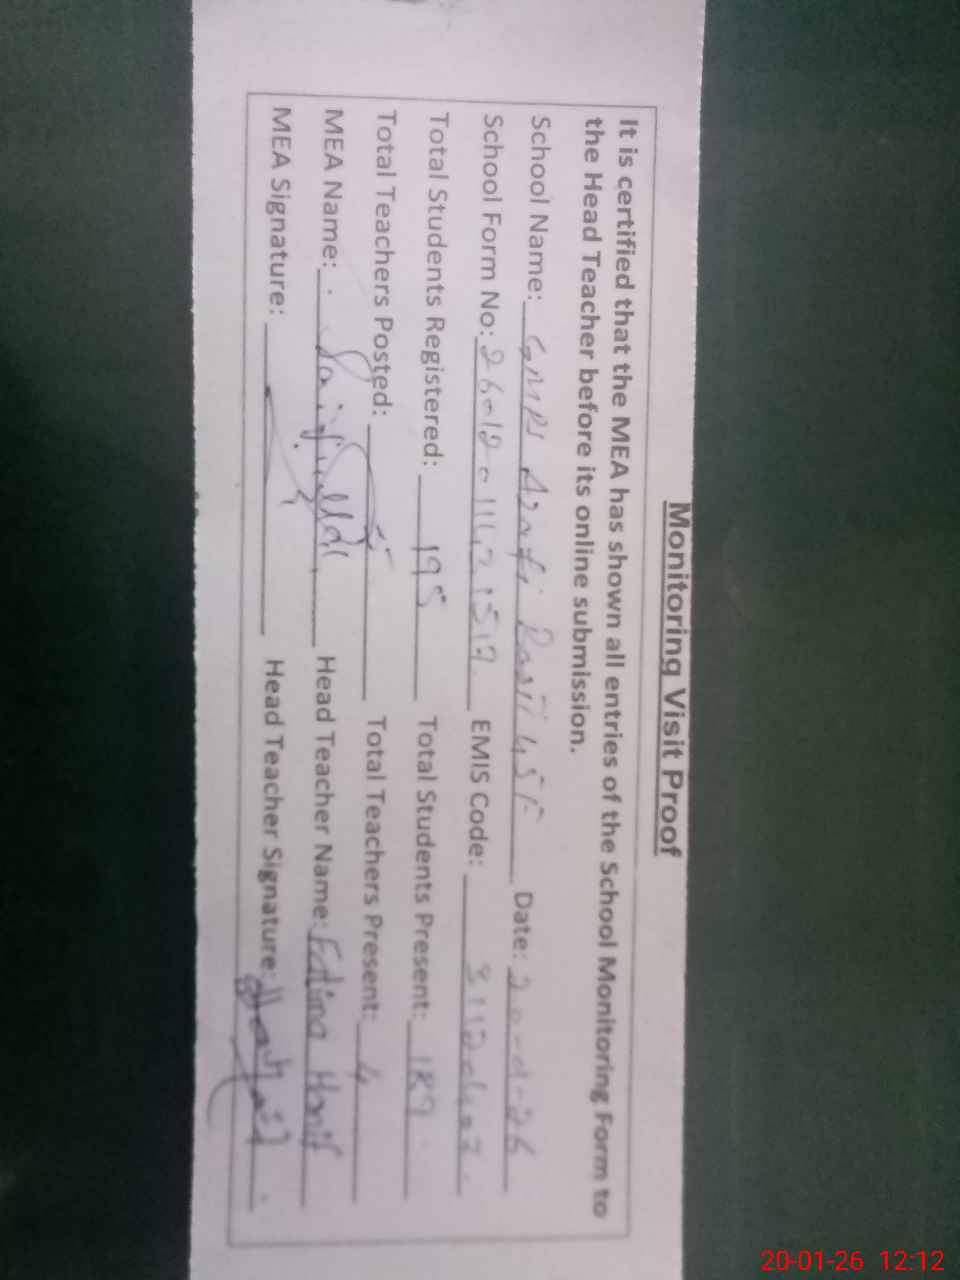 Monitoring Visit Proof
It is certified that the MEA has shown all entries of the School Monitoring Form to
the Head Teacher before its online submission.
School Name: GMPS Arafi Basti 45F Date: 20-01-26
School Form No: EMIS Code:
Total Students Registered: 195 Total Students Present: 189
Total Teachers Posted: 5 Total Teachers Present: 4
MEA Name: Saifullah Head Teacher Name: Fatima Hanif
MEA Signature: Head Teacher Signature:
20-01-26 12:12